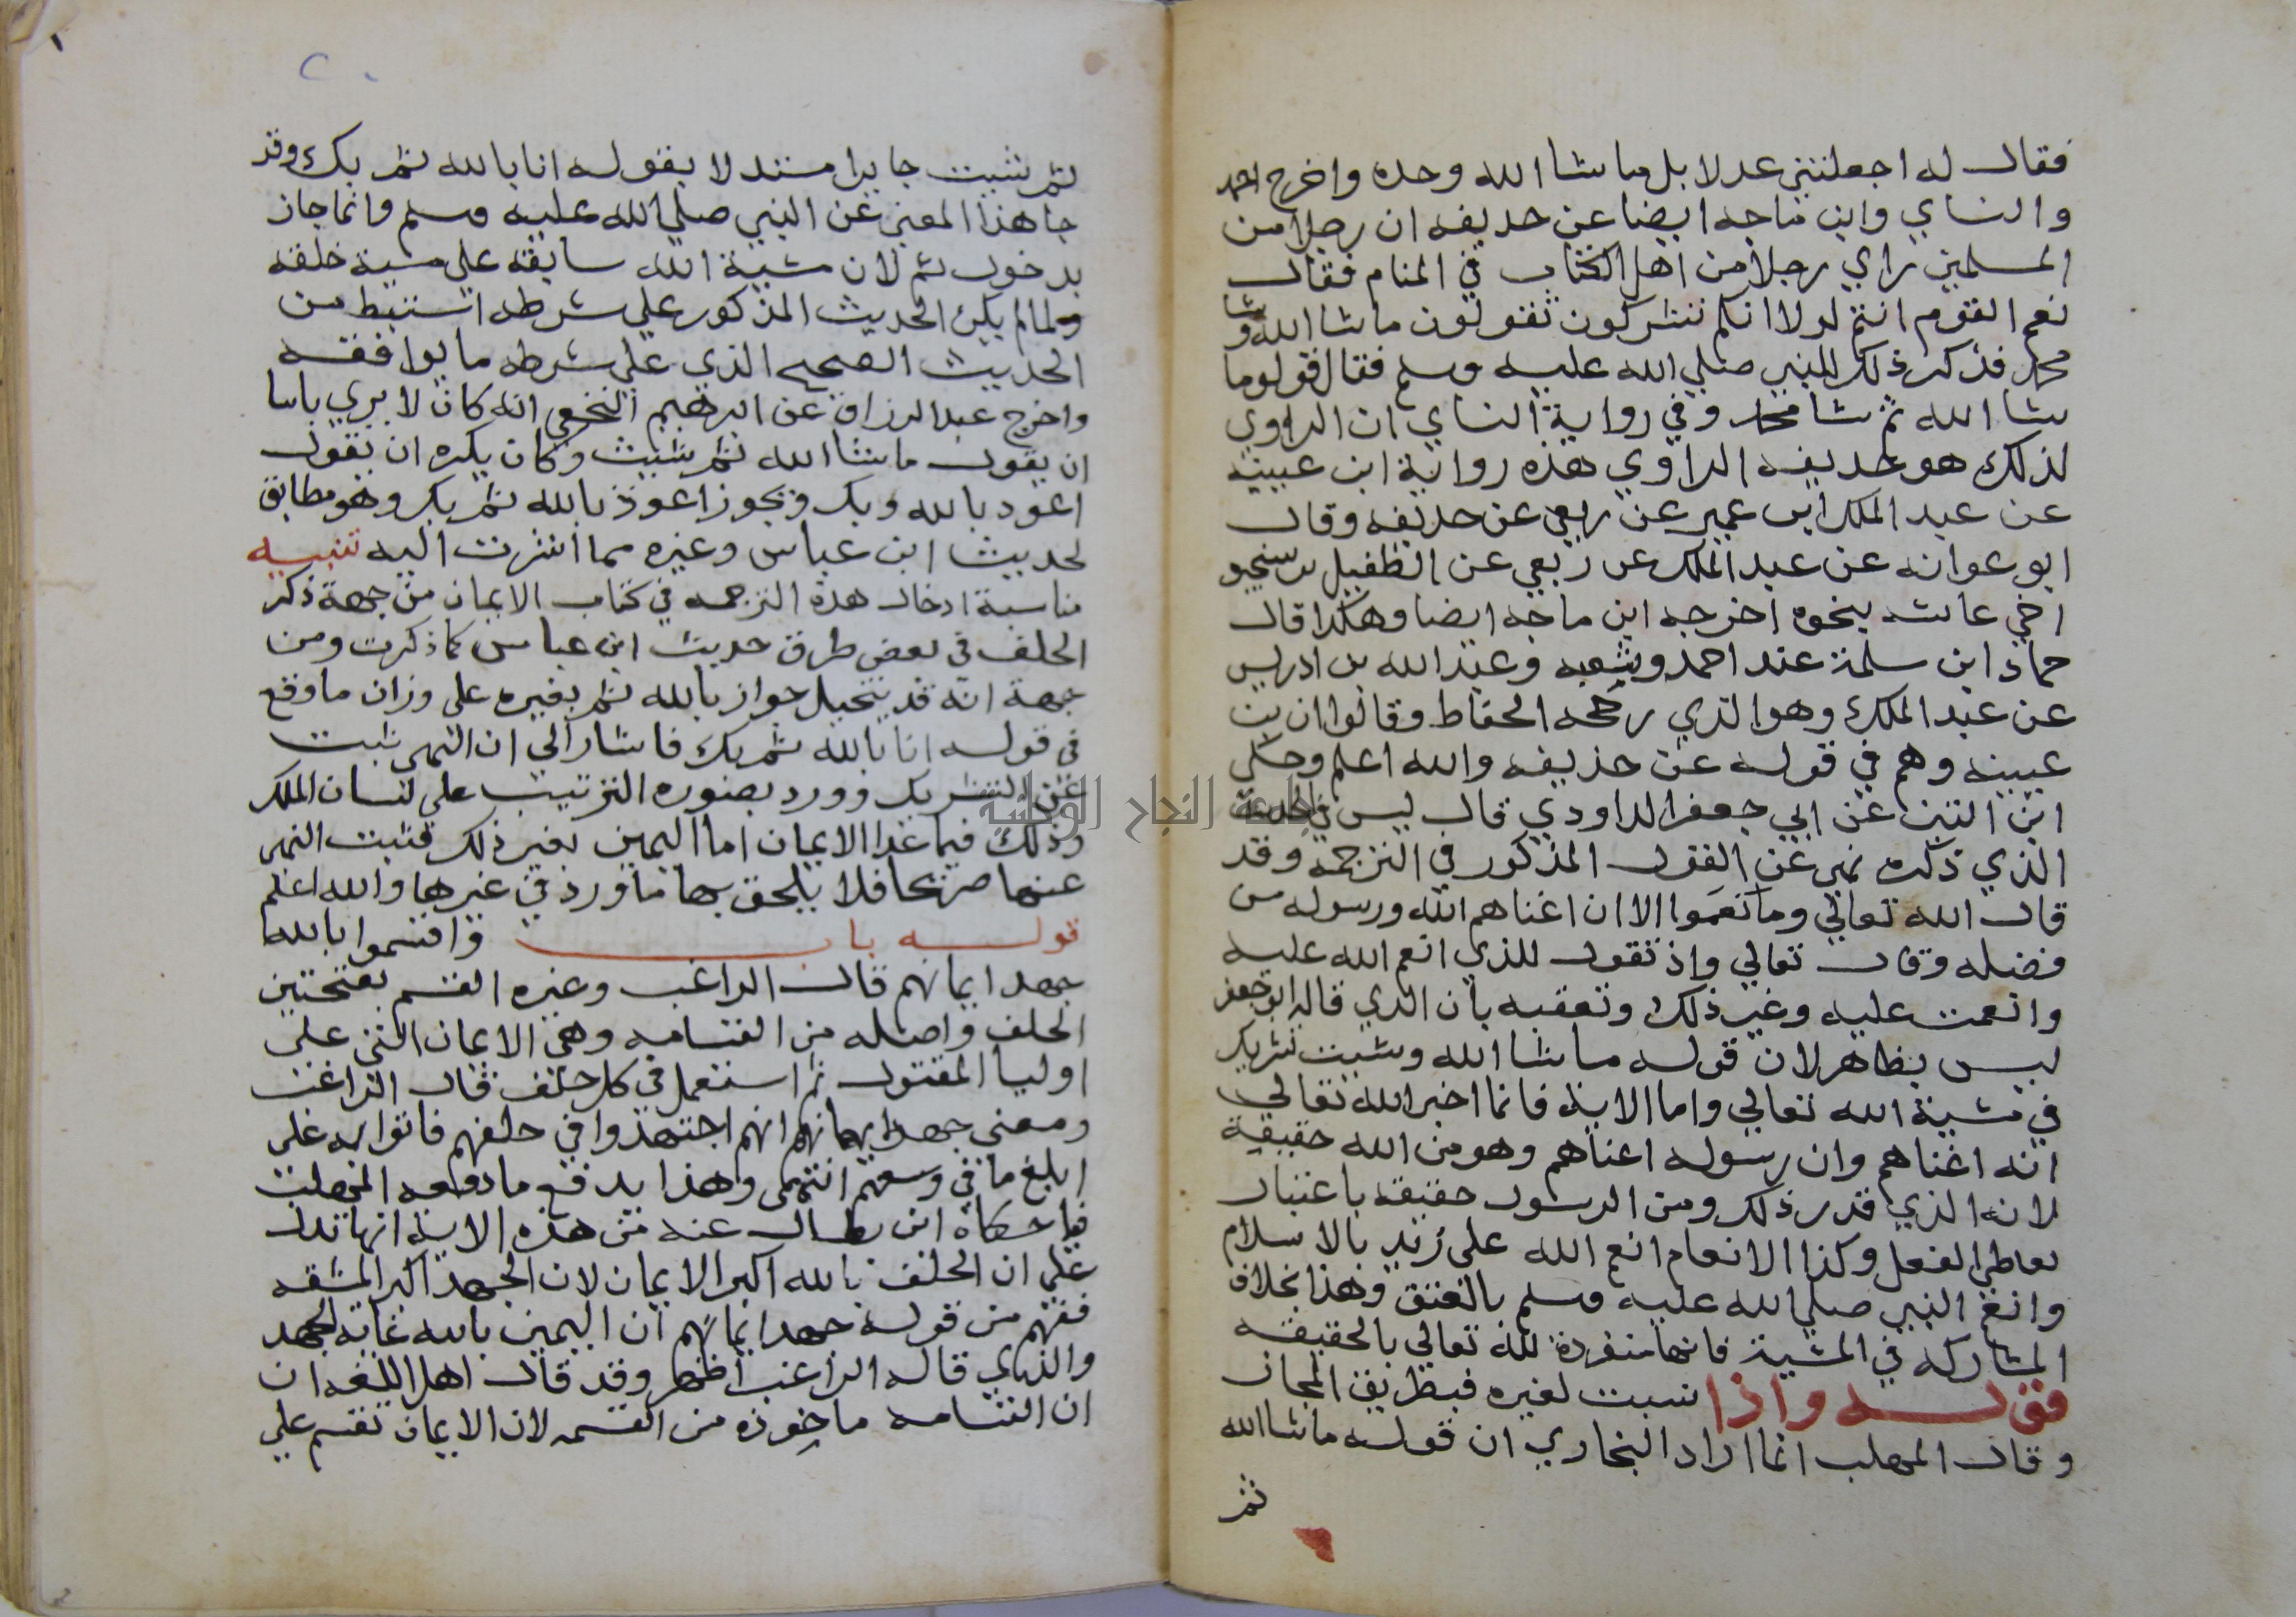 فقال له اجعلتني عدلا بل ما شا الله وحده واخرج احمد
والنساي وابن ماجه ايضا عن حديفه ان رجلا من
المسلمين راي رجلا من اهل الكتاب في المنام فقال
نعم القوم انتم لولا انكم تشركون تقولون ما شا الله وشا
محمد فذكر ذلك للنبي صلي الله عليه وسلم فقال قولوا ما
شا الله ثم شا محمد وفي رواية النساي ان الراوي
لذلك هو حديفه الراوي هذه رواية ابن عيينه
عن عبد الملك ابن عمير عن ربعي عن حديفه وقال
ابو عوانه عن عبد الملك عن ربعي عن الطفيل بن سنجبو
اخي عائشه بنحوه اخرجه ابن ماجه ايضا وهكدا قال
حماد ابن سلمة عند احمد وشعبه وعبد الله بن ادريس
عن عبد الملك وهو الذي رجحه الحفاظ وقالوا ان بن
عيينه وهم في قوله عن حذيفه والله اعلم وحكي
ابن التين عن ابي جعفر الداودي قال ليس في الحديث
الذي ذكره نهي عن القول المذكور في الترجمه وقد
قال الله تعالي وما نقموا الا ان اغناهم الله ورسوله من
فضله وقال تعالي واذ تقول للذي انعم الله عليه
وانعمت عليه وغير ذلك وتعقبه بان الذي قاله ابو جعفر
ليس بظاهر لان قوله ما شا الله وشيت تشريك
في مشية الله تعالي واما الاية فانما اخبر الله تعالي
انه اغناهم وان رسوله اغناهم وهو من الله حقيقة
لانه الذي قدر ذلك ومن الرسول حقيقه باعتبار
تعاطي الفعل وكذا الانعام انعم الله على زيد بالاسلام
وانعم النبي صلي الله عليه وسلم بالعتق وهذا بخلاف
المشاركه في المشية فانها منفردة لله تعالي بالحقيقه
قوله واذا نسبت لغيره فبطريق المجاز
وقال المهلب انما اراد البخاري ان قوله ما شا الله
ثم
٢٠
ثم شيت جايزا مستدلا بقوله انا بالله ثم بك وقد
جا هذا المعنى عن النبي صلي الله عليه وسلم وانما جاز
بدخول ثم لان مشية الله سابقه علي مشية خلقه
ولما لم يكن الحديث المذكور علي شرطه استنبط من
الحديث الصحيح الذي علي شرطه ما يوافقه
واخرج عبد الرزاق عن ابرهيم النخعي انه كان لا يري باسا
ان يقول ما شا الله ثم شيت وكان يكره ان يقول
اعوذ بالله وبك ويجوز اعوذ بالله ثم بك وهو مطابق
لحديث ابن عباس وغيره مما اشرت اليه تنبيه
مناسبة ادخال هذه الترجمه في كتاب الايمان من جهة ذكر
الحلف في بعض طرق حديث ابن عباس كما ذكرت ومن
جهة انه قد يتخيل جواز بالله ثم بغيره على وزان ما وقع
في قوله انا بالله ثم بك فاشار الي ان النهي ثبت
عن التشريك وورد بصوره الترتيب علي لسان الملك
وذلك فيما عدا الايمان اما اليمين بغير ذلك فثبت النهي
عنها صريحا فلا يلحق بها ما ورد في غيرها والله اعلم
قوله باب واقسموا بالله
جهد ايمانهم قال الراغب وغيره القسم بفتحتين
الحلف واصله من القسامه وهي الايمان التي على
اوليا المقتول ثم استعمل في كل حلف قال الراغب
ومعنى جهد ايمانهم انهم اجتهدوا في حلفهم فاتوا به على
ابلغ ما في وسعهم انتهى وهذا يدفع ما دفعه المهلب
فيما حكاه ابن بطال عنه من هذه الاية انها تدل
علي ان الحلف بالله اكبر الايمان لان الجهد اكبر المشقه
ففهم من قوله جهد ايمانهم ان اليمين بالله غايه الجهد
والذي قاله الراغب اظهر وقد قال اهل اللغه ان
ان القسامه ماخوذه من القسمه لان الايمان تقسم علي
جامعة النجاح الوطنية